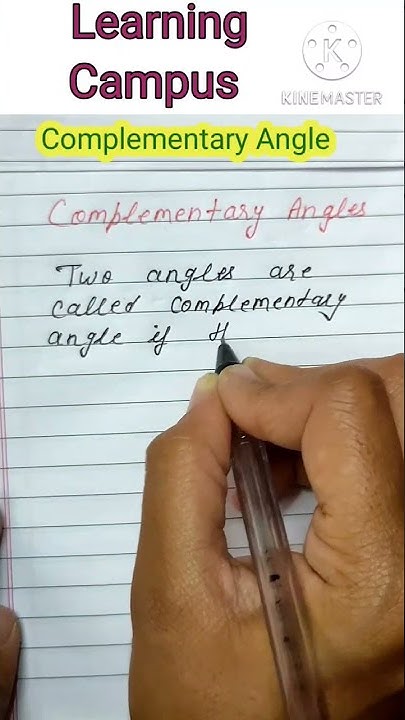 Learning
Campus
KINEMASTER
Complementary Angle
Complementary Angles
Two angles are
called complementary
angle if